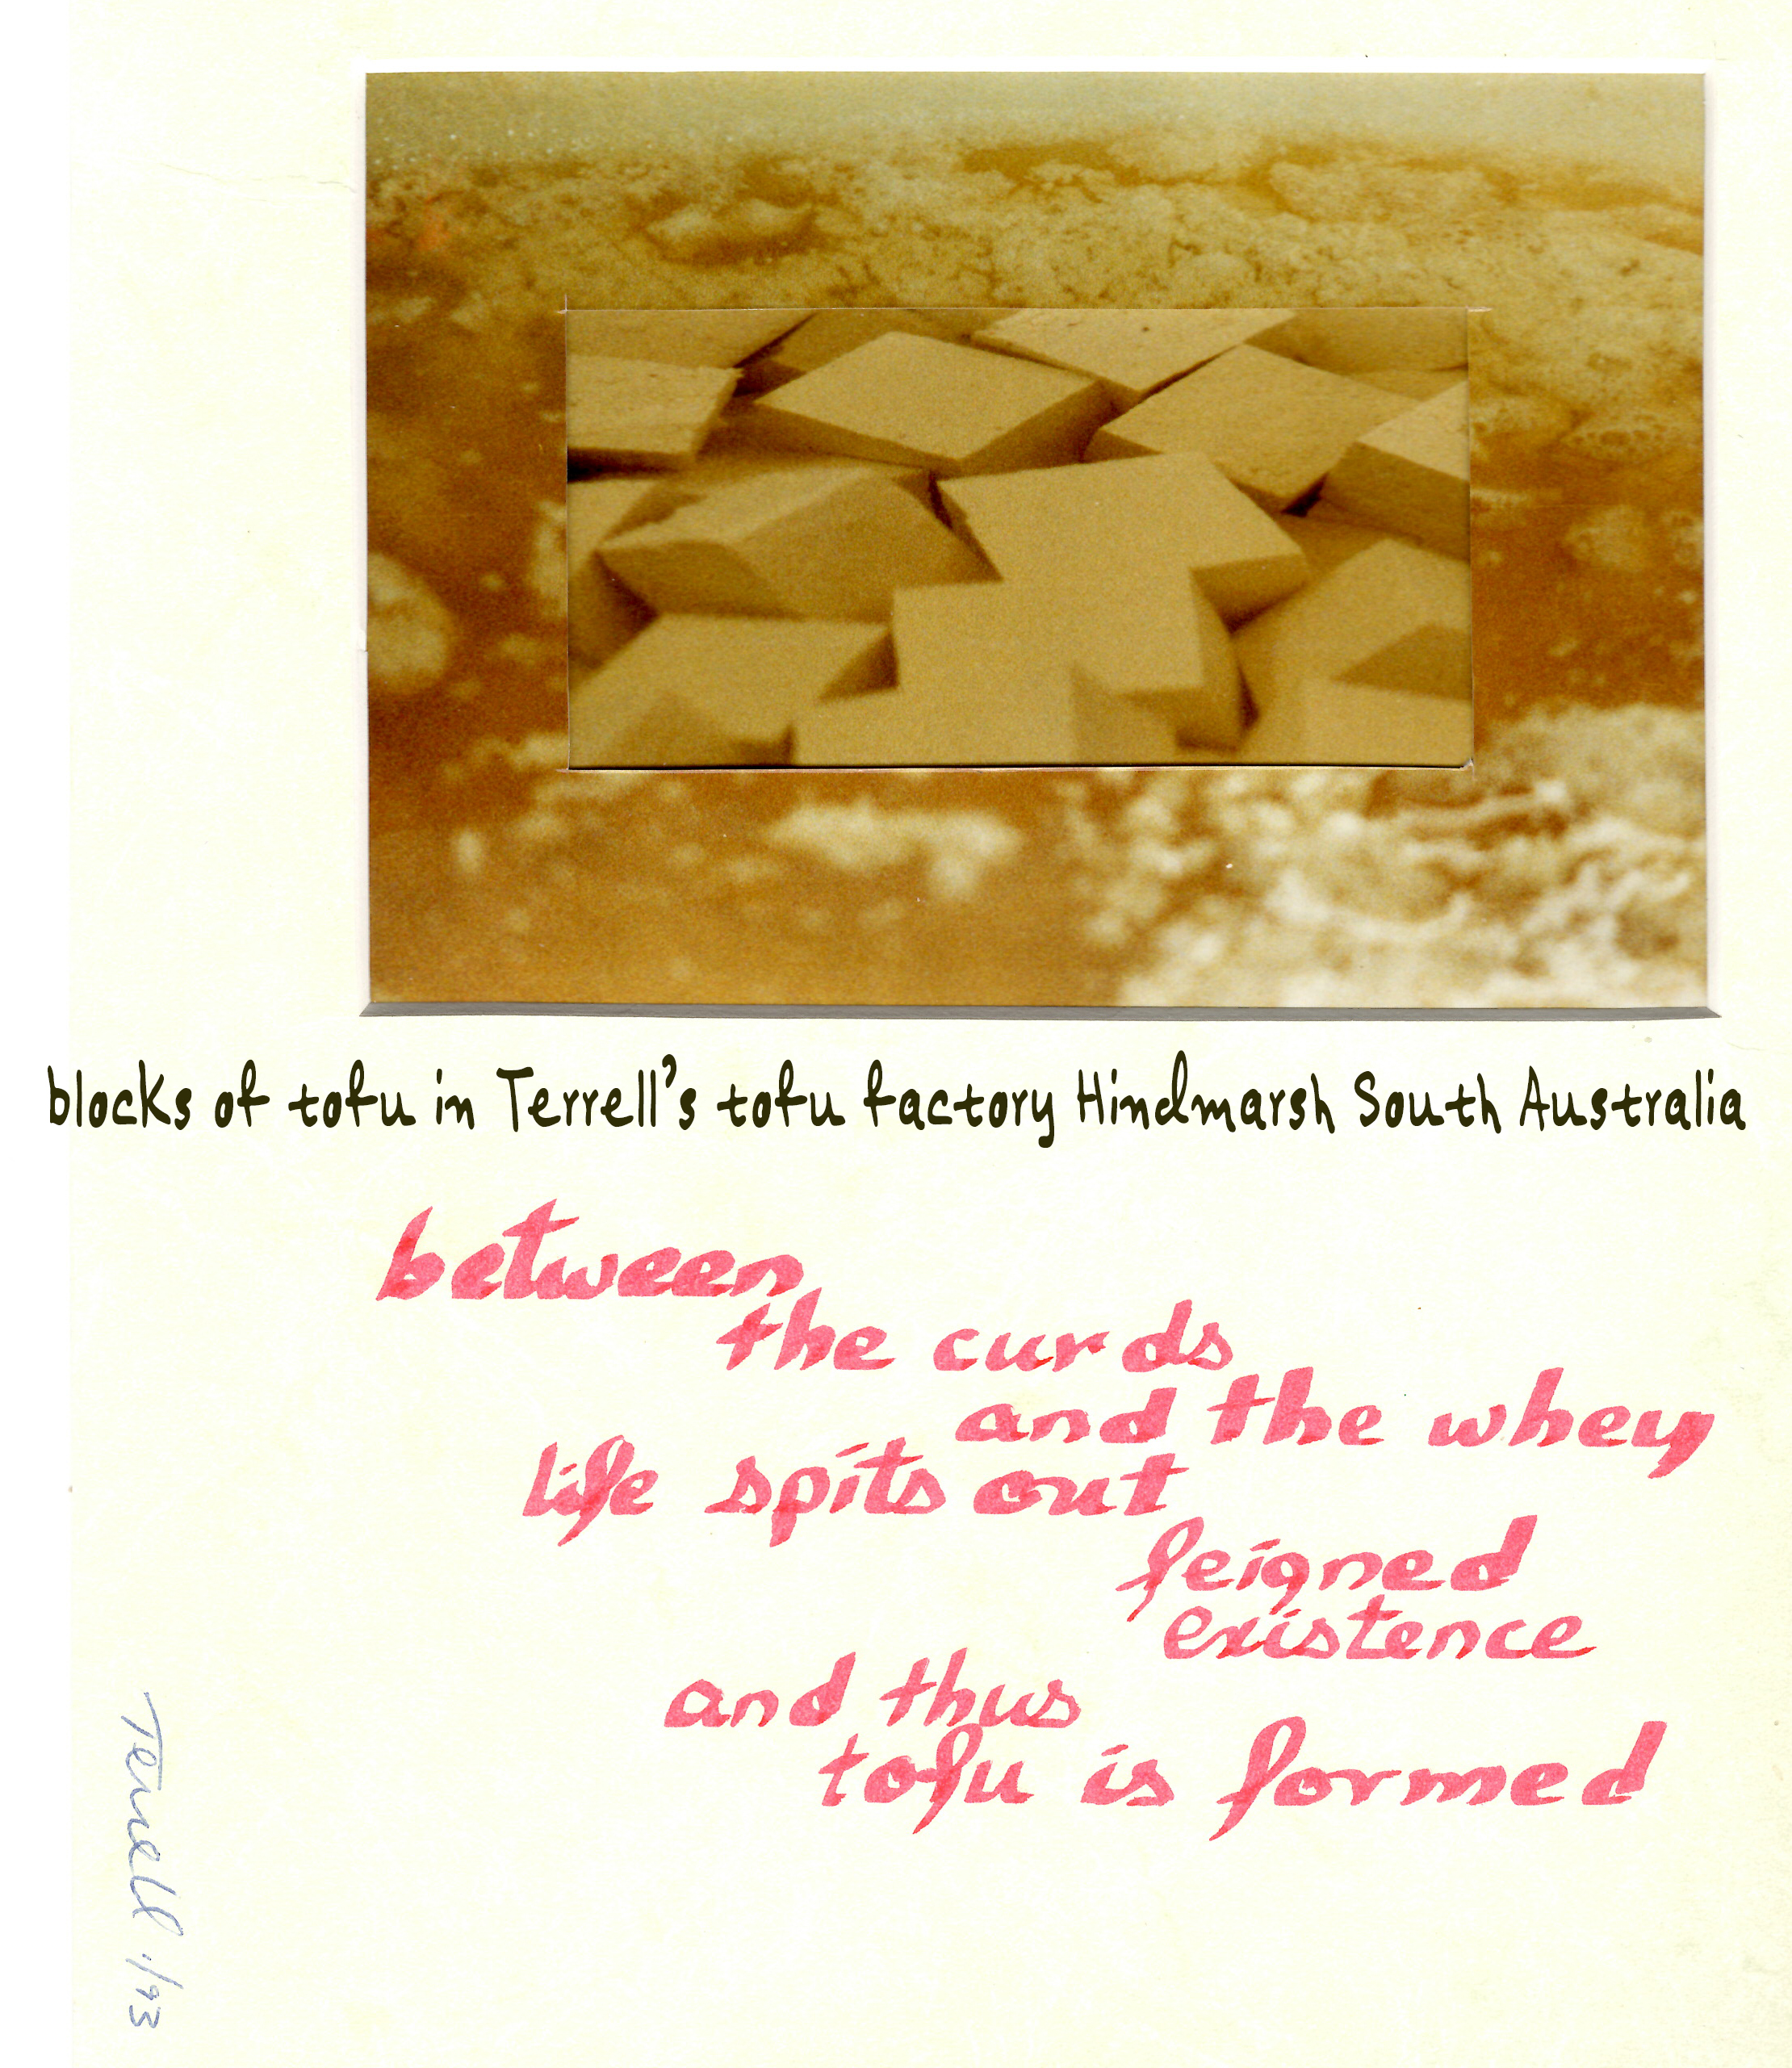 blocks of tofu in Terrell's tofu factory Hindmarsh South Australia
between
the curds
and the whey
life spits out
feigned
existence
and thus
tofu is formed
Terrell 1/93